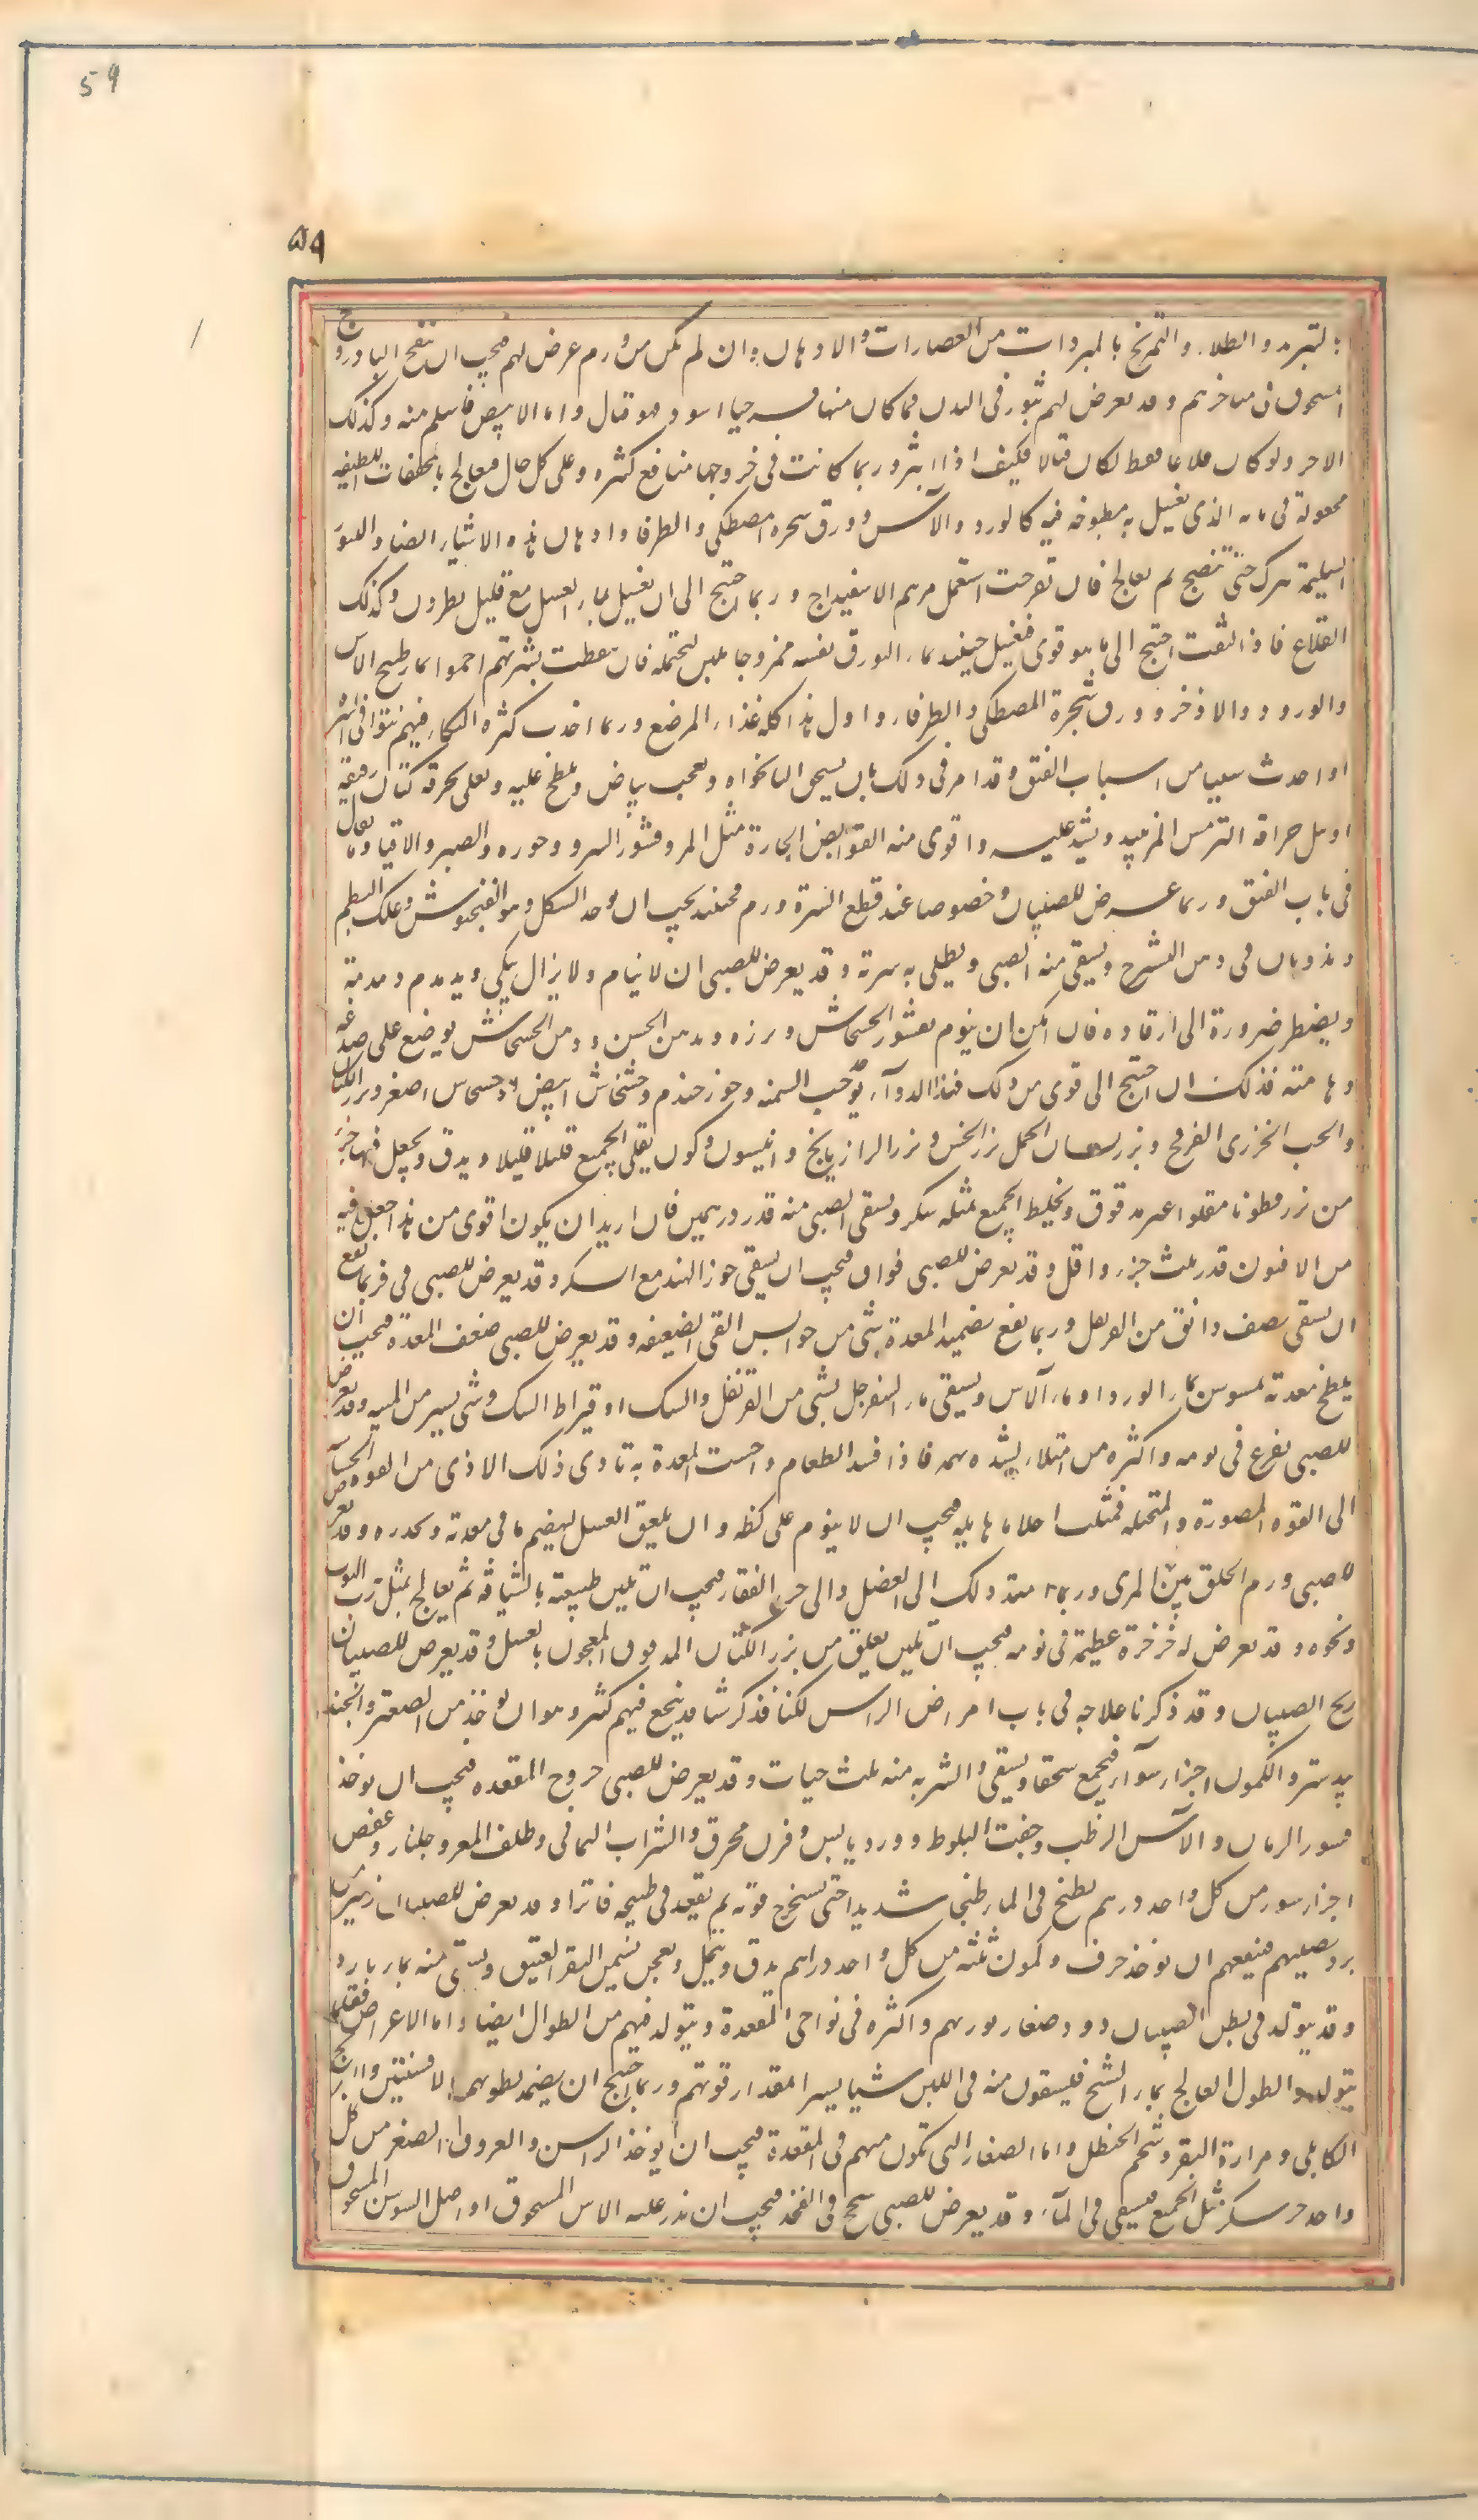 59
٥٩
بالتبريد والطلاء والتمريخ بالمبردات من العصارات والادهان وان لم يكن من ورم عرض لهم فيجب ان ينفخ البادروج
المسحوق فى مناخرهم وقد يعرض لهم بثور فى البدن فما كان منها قرحيا اسود فهو قتال واما الابيض فاسلم منه وكذلك
الاحمر ولو كان قلاعا فقط لكان قتالا فكيف اذا بثر وربما كانت فى خروجها منافع كثيره وعلى كل حال فيعالج بالمجففات اللطيفه
مجعولة فى مائه الذى يغسل به مطبوخه فيه كالورد والآس وورق شجره المصطكى والطرفا وادهان هذه الاشياء ايضا والبثور
السليمة تترك حتى تنضج ثم تعالج فان تقرحت استعمل مرهم الاسفيداج وربما احتيج الى ان يغسل بماء العسل مع قليل نطرون وكذلك
القلاع فاذا كثفت احتيج الى ما هو قوى فيغسل حينئذ بماء البورق نفسه ممزوجا بلبن ليحتمله فان تنفطت بشرتهم احموا بماء طبيخ الآس
والورد والاذخر وورق شجرة المصطكى والطرفاء واول هذا كله غذاء المرضع وربما احدث كثره البكاء فيهم نتوا فى السره
او احدث سببا من اسباب الفتق وقد امر فى ذلك بان يسحق النانخواه ويعجن ببياض ويلطخ عليه ويعلى بخرقه كتان رقيقه
او يبل حراقة الترمس المر بنبيذ ويشد عليه واقوى منه القوابض الحارة مثل المر وقشور السرو وجوزه والصبر والاقاقيا وما يقال
فى باب الفتق وربما عرض للصبيان وخصوصا عند قطع السرة ورم فحينئذ يجب ان يوخذ السنكل وهو الفنجيوش وعلك البطم
ويذوبان فى دهن الشيرج ويسقى منه الصبى ويطلى به سرته وقد يعرض للصبى ان لا ينام ولا يزال يبكى ويدمدم دمدمة
ويضطر ضرورة الى ارقاده فان امكن ان ينوم بقشور الخشخاش وبزره وبدهن الخس ودهن الخشخاش يوضع على صدغه
وهامته فذلك وان احتيج الى قوى من ذلك فهذا الدوآء يوخذ حب السمنه وجوز جندم وخشخاش ابيض وخشخاش اصفر وبزر الكتان
والحب الخوزى الفرفخ وبزر لسان الحمل بزر الخس وبزر الرازيانج وانيسون وكمون يقلى الجميع قليلا قليلا ويدق ويجعل فيها جزء
من بزر قطونا مقلوا غير مدقوق ويخلط الجميع بمثله سكر ويسقى الصبى منه قدر درهمين فان اريد ان يكون اقوى من هذا جعل فيه
من الافيون قدر ثلث جزء واقل وقد يعرض للصبى فواق فيجب ان يسقى جوز الهند مع السكر وقد يعرض للصبى قى فربما نفع
ان يسقى نصف دانق من القرنفل وربما نفع تضميد المعدة بشى من حوابس القى الضعيفه وقد يعرض للصبى ضعف المعدة فيجب ان
يلطخ معدته بميسوس بماء الورد او ماء الآس ويسقى ماء السفرجل بشى من القرنفل والسك او قيراط السك وشى يسير من الميبه وقد يعرض
للصبى تفزع فى نومه واكثره من امتلاء يشتد نهمه فاذا فسد الطعام واحست المعدة به تاذى ذلك الاذى من القوه الحساسه
الى القوه المصورة والمتخيله فمثلت احلاما هايله فيجب ان لا ينوم على كظه وان يلعق العسل ليهضم ما فى معدته ويحدره وقد يعرض
للصبى ورم الحلق بين الفم والمرى وربما امتد ذلك الى العضل والى خرز الفقار فيجب ان تلين طبيعته بالشيافه ثم يعالج بمثل رب التوت
ونحوه وقد يعرض له خرخرة عظيمة فى نومه فيجب ان يلعق من بزر الكتان المدقوق المعجون بالعسل وقد يعرض للصبيان
ريح الصبيان وقد ذكرنا علاجه فى باب امراض الراس لكنا نذكر شيا قد ينجع فيهم كثيرا وهو ان يوخذ من الصعتر والجند
بيدستر والكمون اجزاء سوآء فيجمع سحقا ويسقى والشربه منه ثلث حبات وقد يعرض للصبى خروج المقعده فيجب ان يوخذ
قشور الرمان والآس الرطب وجفت البلوط وورد يابس وقرن محرق والشراب اليمانى وظلف المعز وجلنار وعفص
اجزاء سوا من كل واحد درهم يطبخ فى الماء طبخا شديدا حتى يستخرج قوته ثم يقعد فى طبيخه فاترا وقد يعرض للصبيان زحير من
برد يصيبهم فينفعهم ان يوخذ حرف وكمون ثلثه من كل واحد دراهم يدق وينخل ويعجن بسمن البقر العتيق ويسقى منه بماء بارد
وقد يتولد فى بطن الصبيان دود صغار يوذيهم واكثره فى نواحى المقعدة ويتولد فيهم من الطوال ايضا واما العراض فقلما
يتولد والطوال يعالج بماء الشيح فيسقون منه فى اللبن شيا يسيرا بمقدار قوتهم وربما احتيج ان يضمد بطونهم بالافسنتين والبرنج
الكابلى ومرارة البقر وشحم الحنظل واما الصغار التى تكون منهم فى المقعدة فيجب ان يوخذ الراسن والعروق الصفر من كل
واحد جزء سكر مثل الجميع فيسقى فى المآء وقد يعرض للصبى سحج فى الفخذ فيجب ان يذر عليه الاس المسحوق او اصل السوسن المسحوق